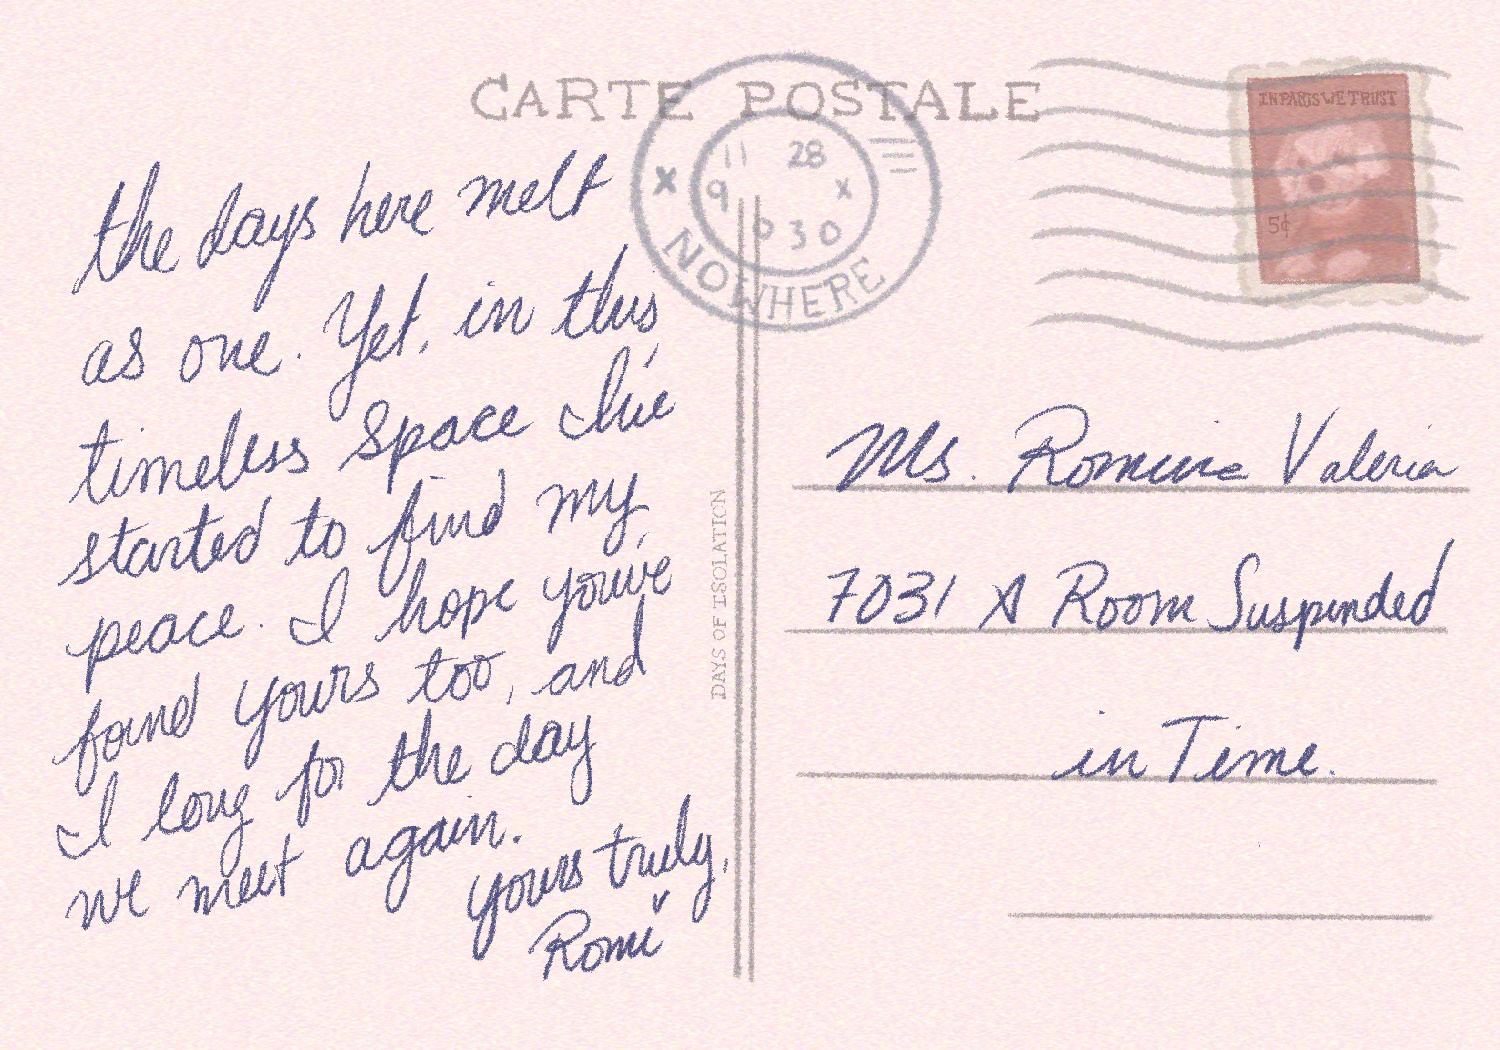 CARTE POSTALE
11 28
9 X
0 30
X
NOWHERE
IN PARIS WE TRUST
5¢
the days here melt
as one. Yet, in this
timeless space I've
started to find my
peace. I hope you've
found yours too, and
I long for the day
we meet again.
yours truly,
Romi
DAYS OF ISOLATION
Ms. Romina Valeria
7031 A Room Suspended
in Time.